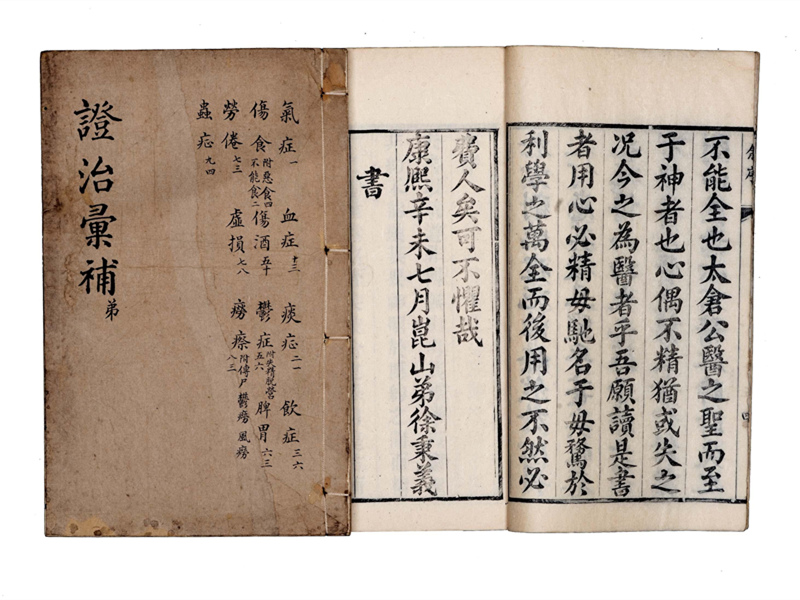 不能全也太倉公醫之聖而至
于神者也心偶不精猶或失之
况今之為醫者乎吾願讀是書
者用心必精毋馳名于毋騖於
利學之萬全而後用之不然必
費人矣可不懼哉
康熙辛未七月崑山弟徐秉義
書
氣症一 血症十三 痰症二一 飲症三六
傷食附惡食四不能食二 傷酒五十 鬱症附失精脱營五六 脾胃六三
勞倦七三 虛損七八 癆瘵附傳尸鬱癆風癆八三
蟲症九四
證治彙補弟